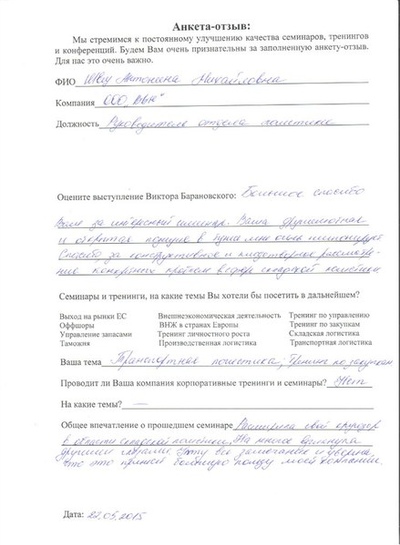 Анкета-отзыв:
Мы стремимся к постоянному улучшению качества семинаров, тренингов
и конференций. Будем Вам очень признательны за заполненную анкету-отзыв.
Для нас это очень важно.
ФИО Антонина Михайловна
Компания ООО
Должность Руководитель отдела логистики
Оцените выступление Виктора Барановского: Большое спасибо
Вам за интересный семинар. Ваша
и открытая
Спасибо за конструктивное и плодотворное
конкретных проблем в сфере складской логистики
Семинары и тренинги, на какие темы Вы хотели бы посетить в дальнейшем?
Выход на рынки ЕС Внешнеэкономическая деятельность Тренинг по управлению
Оффшоры ВНЖ в странах Европы Тренинг по закупкам
Управление запасами Тренинг личностного роста Складская логистика
Таможня Производственная логистика Транспортная логистика
Ваша тема Транспортная логистика, Тренинг по закупкам
Проводит ли Ваша компания корпоративные тренинги и семинары? Нет
На какие темы? —
Общее впечатление о прошедшем семинаре Расширила свой кругозор
в области складской логистики. На многое взглянула
другими глазами. уверена,
что это принесет большую пользу моей компании.
Дата: 22.05.2015